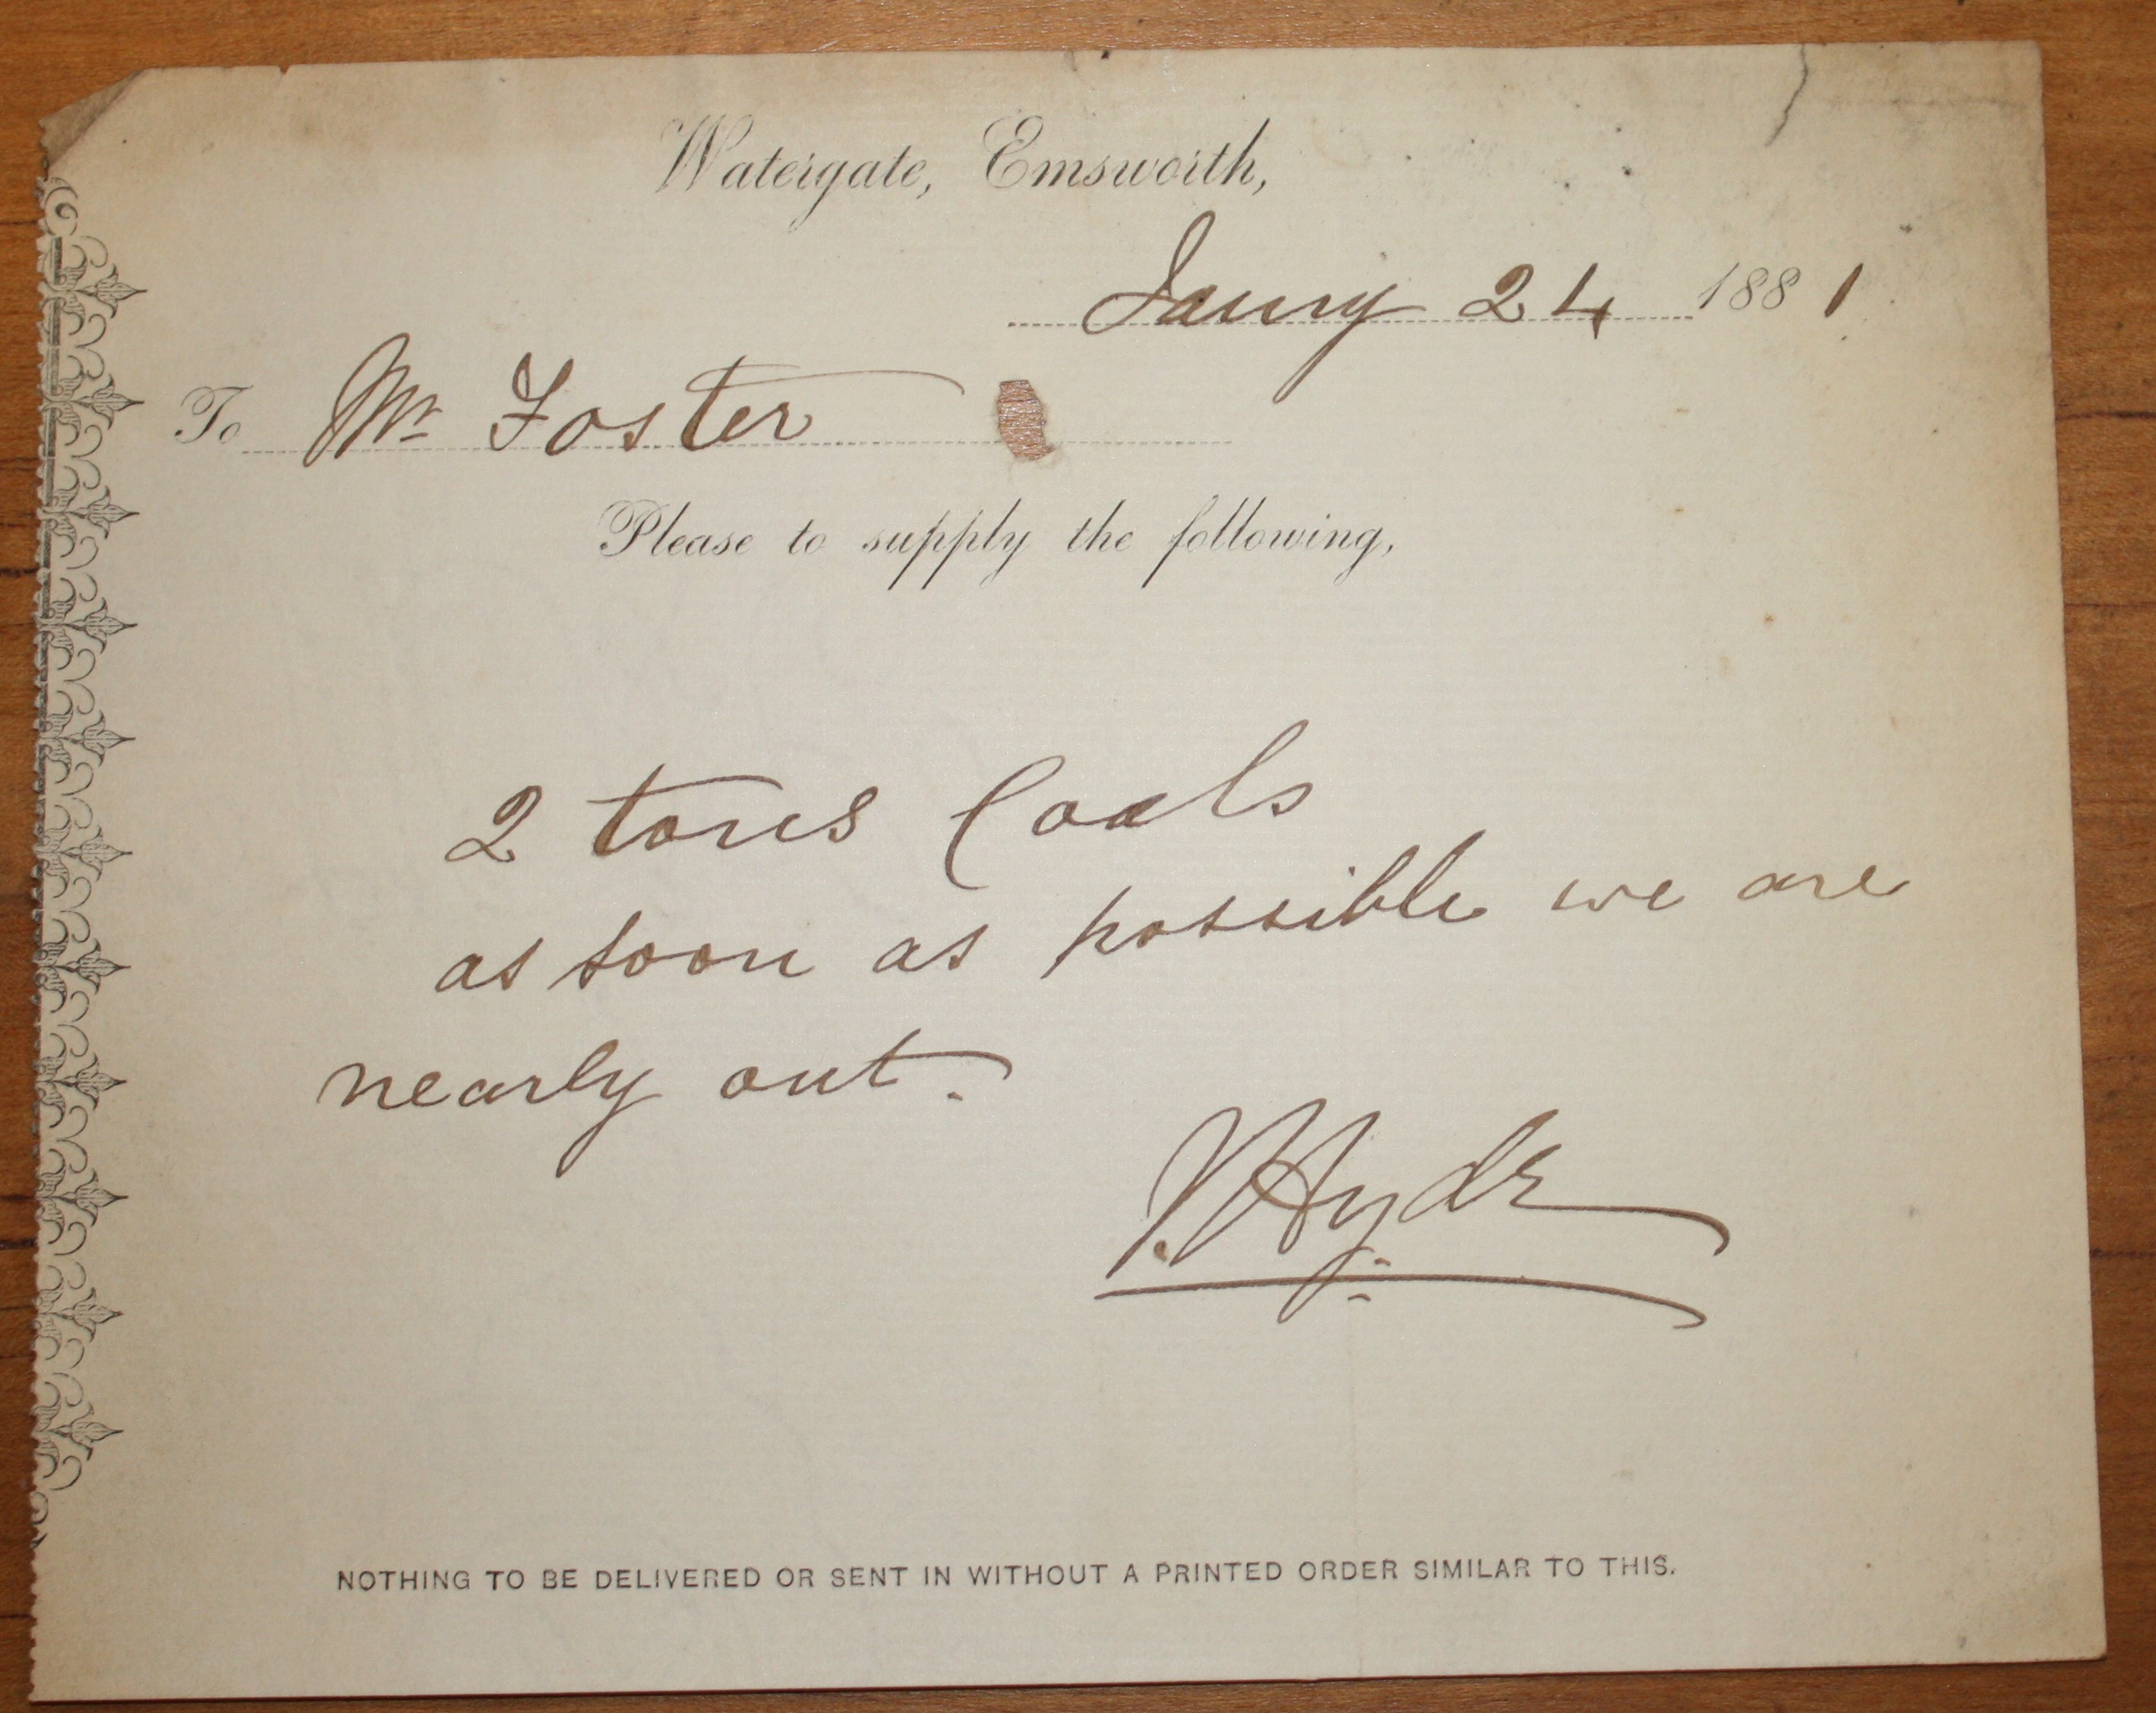 Watergate, Emsworth,
Jany 24 1881
To Mr Foster
Please to supply the following,
2 tons Coals
as soon as possible we are
nearly out.
J. Hyde
NOTHING TO BE DELIVERED OR SENT IN WITHOUT A PRINTED ORDER SIMILAR TO THIS.